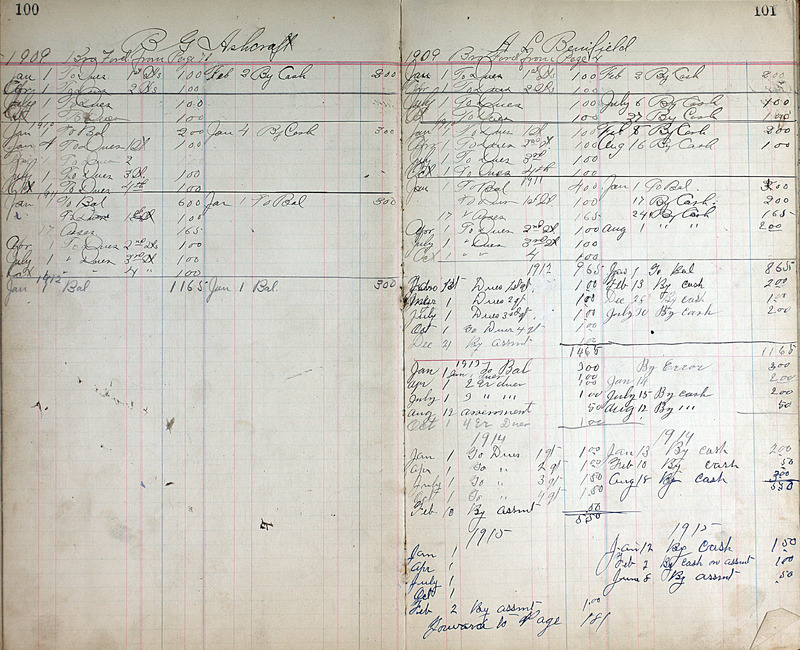 100
B G Ashcraft
1909 Bro Ford from Page
Jan 1 To Dues 1st 100 Feb 2 By Cash 300
Apr 1 To Dues 2 100
July 1 To Dues 100
Oct 100
Jan 1 To Bal 200 Jan 4 By Cash 300
Jan To Dues 1st 100
To Dues 2
July 1 To Dues 3 100
Oct To Dues 4th 100
Jan 1 To Bal 600 Jan 1 To Bal 300
To Dues 1st 100
17 165
Apr 1 To Dues 2nd 100
July 1 " Dues 3rd 100
Oct " 4 " 100
Jan 1912 Bal 1165 Jan 1 Bal 300
101
A L Benifield
1909 Bro Ford from Page
Jan 1 To Dues 1st 100 Feb 2 By Cash 200
Apr 1 To Dues 2 100
July 1 To Dues 100 July 6 By Cash 100
Oct 1 To Dues 100 27 By Cash 100
Jan 1 To Dues 1st 100 Feb 8 By Cash 300
Apr 1 To Dues 100 Aug 16 By Cash 100
July To Dues 3rd 100
Oct 1 To Dues 4th 100
1911
Jan 1 To Bal 400 Jan 1 To Bal 300
To Dues 1st 100 17 By Cash 200
17 " 165 24 By Cash 165
Apr 1 To Dues 2nd 100 Aug 1 " " 200
July 1 " Dues 3rd 100
Oct 1 " " 4 100
1912 965 Jan 1 To Bal 865
1st Dues 1st qt 100 Feb 13 By cash 200
1 Dues 2 qt 100 Dec 25 By cash 100
July 1 Dues 3rd qt 100 July 10 By cash 200
Oct 1 To Dues 4 qt 100
Dec 21 By assmt 100
1465 1165
1913
Jan 1 To Bal 300 By Error 300
Jan 1 dues 100
Apr 1 2 Qr dues 100 Jan 14 200
July 1 3 " " 100 July 15 By cash 200
Aug 12 assessment 50 Aug 12 By " " 50
Oct 1 4 Qr Dues 100
1914 1914
Jan 1 To Dues 1 qt 100 Jan 13 By cash 200
Apr 1 To " 2 qt 100 Feb 10 By cash 50
July 1 To " 3 qt 150 Aug 18 By cash 300
Oct 1 To " 4 qt 150 550
Feb 10 By assmt 50
550
1915 1915
Jan 1 Jan 12 By Cash 150
Apr 1 Feb 2 By cash on assmt 100
July 1 June 8 By assmt 50
Oct 1
Feb 2 By assmt 1.00
Forward to Page 181